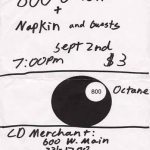 +
Napkin and guests
Sept 2nd
7:00pm $3
800 Octane
CD Merchant:
600 W. Main